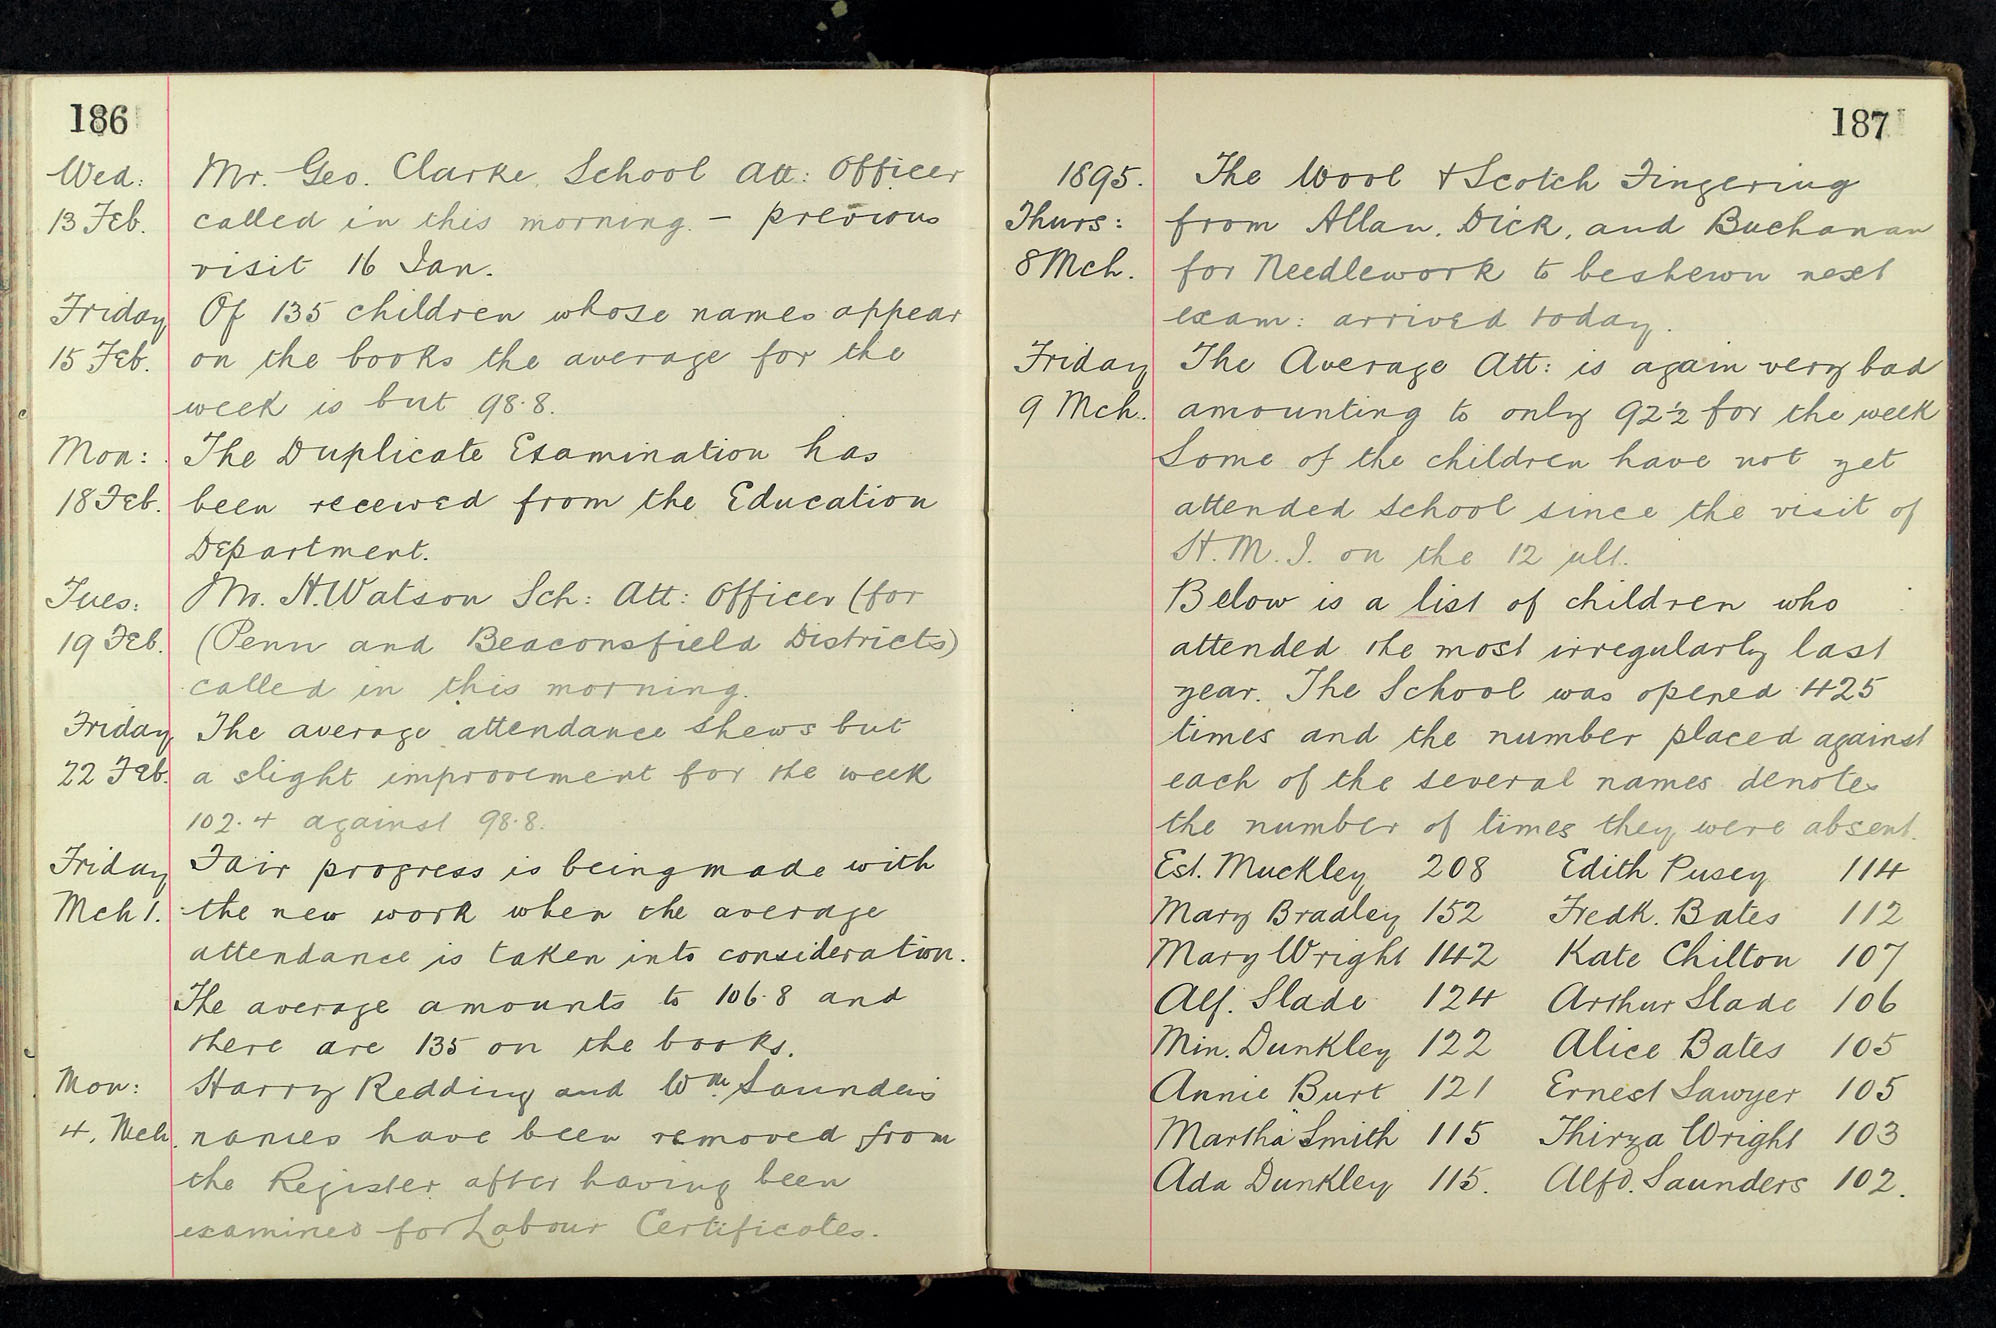 186
Wed: Mr. Geo. Clarke, School Att: Officer
13 Feb. called in this morning. – previous
visit 16 Jan.
Friday Of 135 children whose names appear
15 Feb. on the books the average for the
week is but 98·8.
Mon: The Duplicate Examination has
18 Feb. been received from the Education
Department.
Tues: Mr. H. Watson Sch: Att: Officer (for
19 Feb. (Penn and Beaconsfield Districts)
called in this morning.
Friday The average attendance shews but
22 Feb. a slight improvement for the week
102·4 against 98·8.
Friday Fair progress is being made with
Mch 1. the new work when the average
attendance is taken into consideration.
The average amounts to 106·8 and
there are 135 on the books.
Mon: Harry Redding and Wm. Saunders
4. Mch. names have been removed from
the Register after having been
examined for Labour Certificates.
187
1895. The Wool & Scotch Fingering
Thurs: from Allan, Dick, and Buchanan
8 Mch. for Needlework to beshewn next
exam: arrived today.
Friday The Average Att: is again very bad
9 Mch. amounting to only 92½ for the week
Some of the children have not yet
attended school since the visit of
H.M.I. on the 12 ult.
Below is a list of children who
attended the most irregularly last
year. The School was opened 425
times and the number placed against
each of the several names denotes
the number of times they were absent.
Est. Muckley 208 Edith Pusey 114
Mary Bradley 152 Fredk. Bates 112
Mary Wright 142 Kate Chilton 107
Alf. Slade 124 Arthur Slade 106
Min. Dunkley 122 Alice Bates 105
Annie Burt 121 Ernest Sawyer 105
Martha Smith 115 Thirza Wright 103
Ada Dunkley 115. Alfd. Saunders 102.